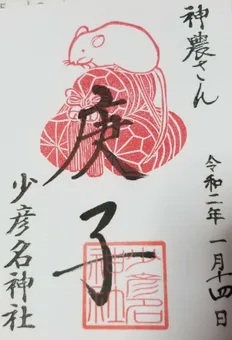 神農さん
令和二年一月十四日
庚子
少彦名神社
少彦名
神社